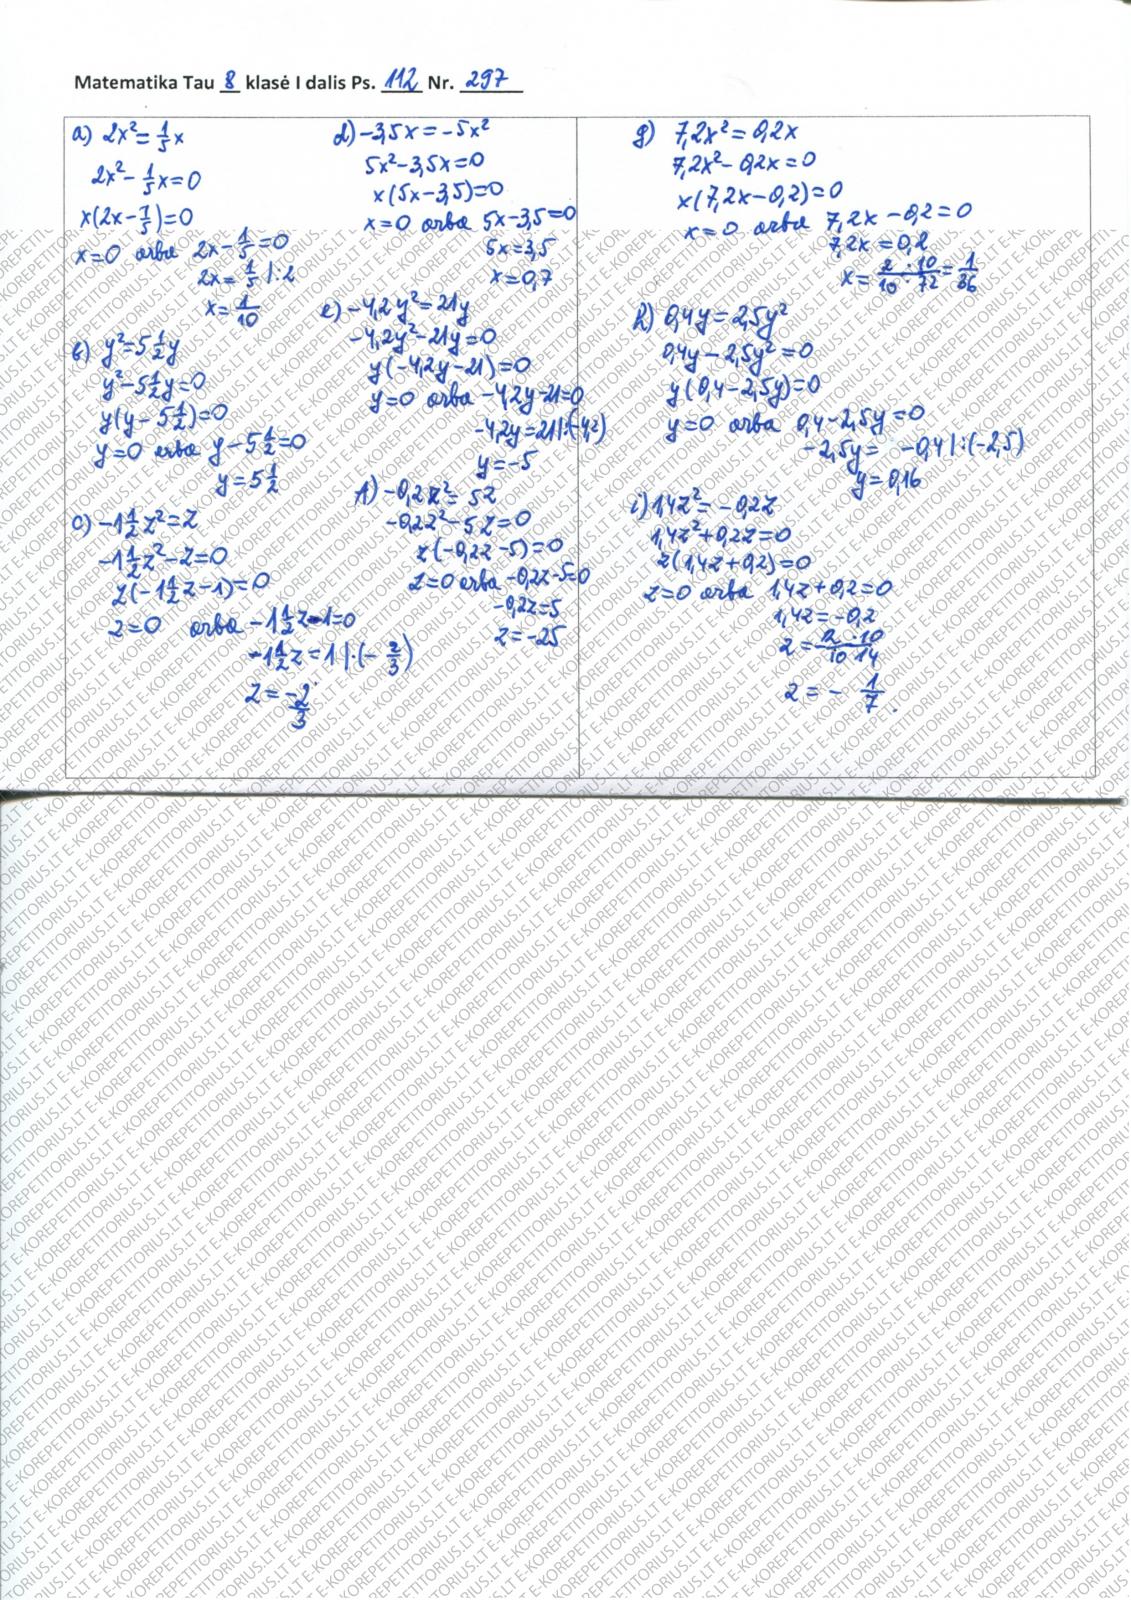 Matematika Tau 8 klasė I dalis Ps. 112 Nr. 297
a) 2x² = 1/5 x
2x² - 1/5 x = 0
x(2x - 1/5) = 0
x = 0 arba 2x - 1/5 = 0
2x = 1/5 |:2
x = 1/10
b) y² = 5 1/2 y
y² - 5 1/2 y = 0
y(y - 5 1/2) = 0
y = 0 arba y - 5 1/2 = 0
y = 5 1/2
c) -1 1/2 z² = z
-1 1/2 z² - z = 0
z(-1 1/2 z - 1) = 0
z = 0 arba -1 1/2 z - 1 = 0
-1 1/2 z = 1 |·(-2/3)
z = -2/3
d) -3,5x = -5x²
5x² - 3,5x = 0
x(5x - 3,5) = 0
x = 0 arba 5x - 3,5 = 0
5x = 3,5
x = 0,7
e) -4,2y² = 21y
-4,2y² - 21y = 0
y(-4,2y - 21) = 0
y = 0 arba -4,2y - 21 = 0
-4,2y = 21 |:(-4,2)
y = -5
f) -0,2z² = 5z
-0,2z² - 5z = 0
z(-0,2z - 5) = 0
z = 0 arba -0,2z - 5 = 0
-0,2z = 5
z = -25
g) 7,2x² = 0,2x
7,2x² - 0,2x = 0
x(7,2x - 0,2) = 0
x = 0 arba 7,2x - 0,2 = 0
7,2x = 0,2
x = 2·10/10·72 = 1/36
h) 0,4y = 2,5y²
0,4y - 2,5y² = 0
y(0,4 - 2,5y) = 0
y = 0 arba 0,4 - 2,5y = 0
-2,5y = -0,4 |:(-2,5)
y = 0,16
i) 1,4z² = -0,2z
1,4z² + 0,2z = 0
z(1,4z + 0,2) = 0
z = 0 arba 1,4z + 0,2 = 0
1,4z = -0,2
z = -2·10/10·14
z = -1/7.
E-KOREPETITORIUS.LT